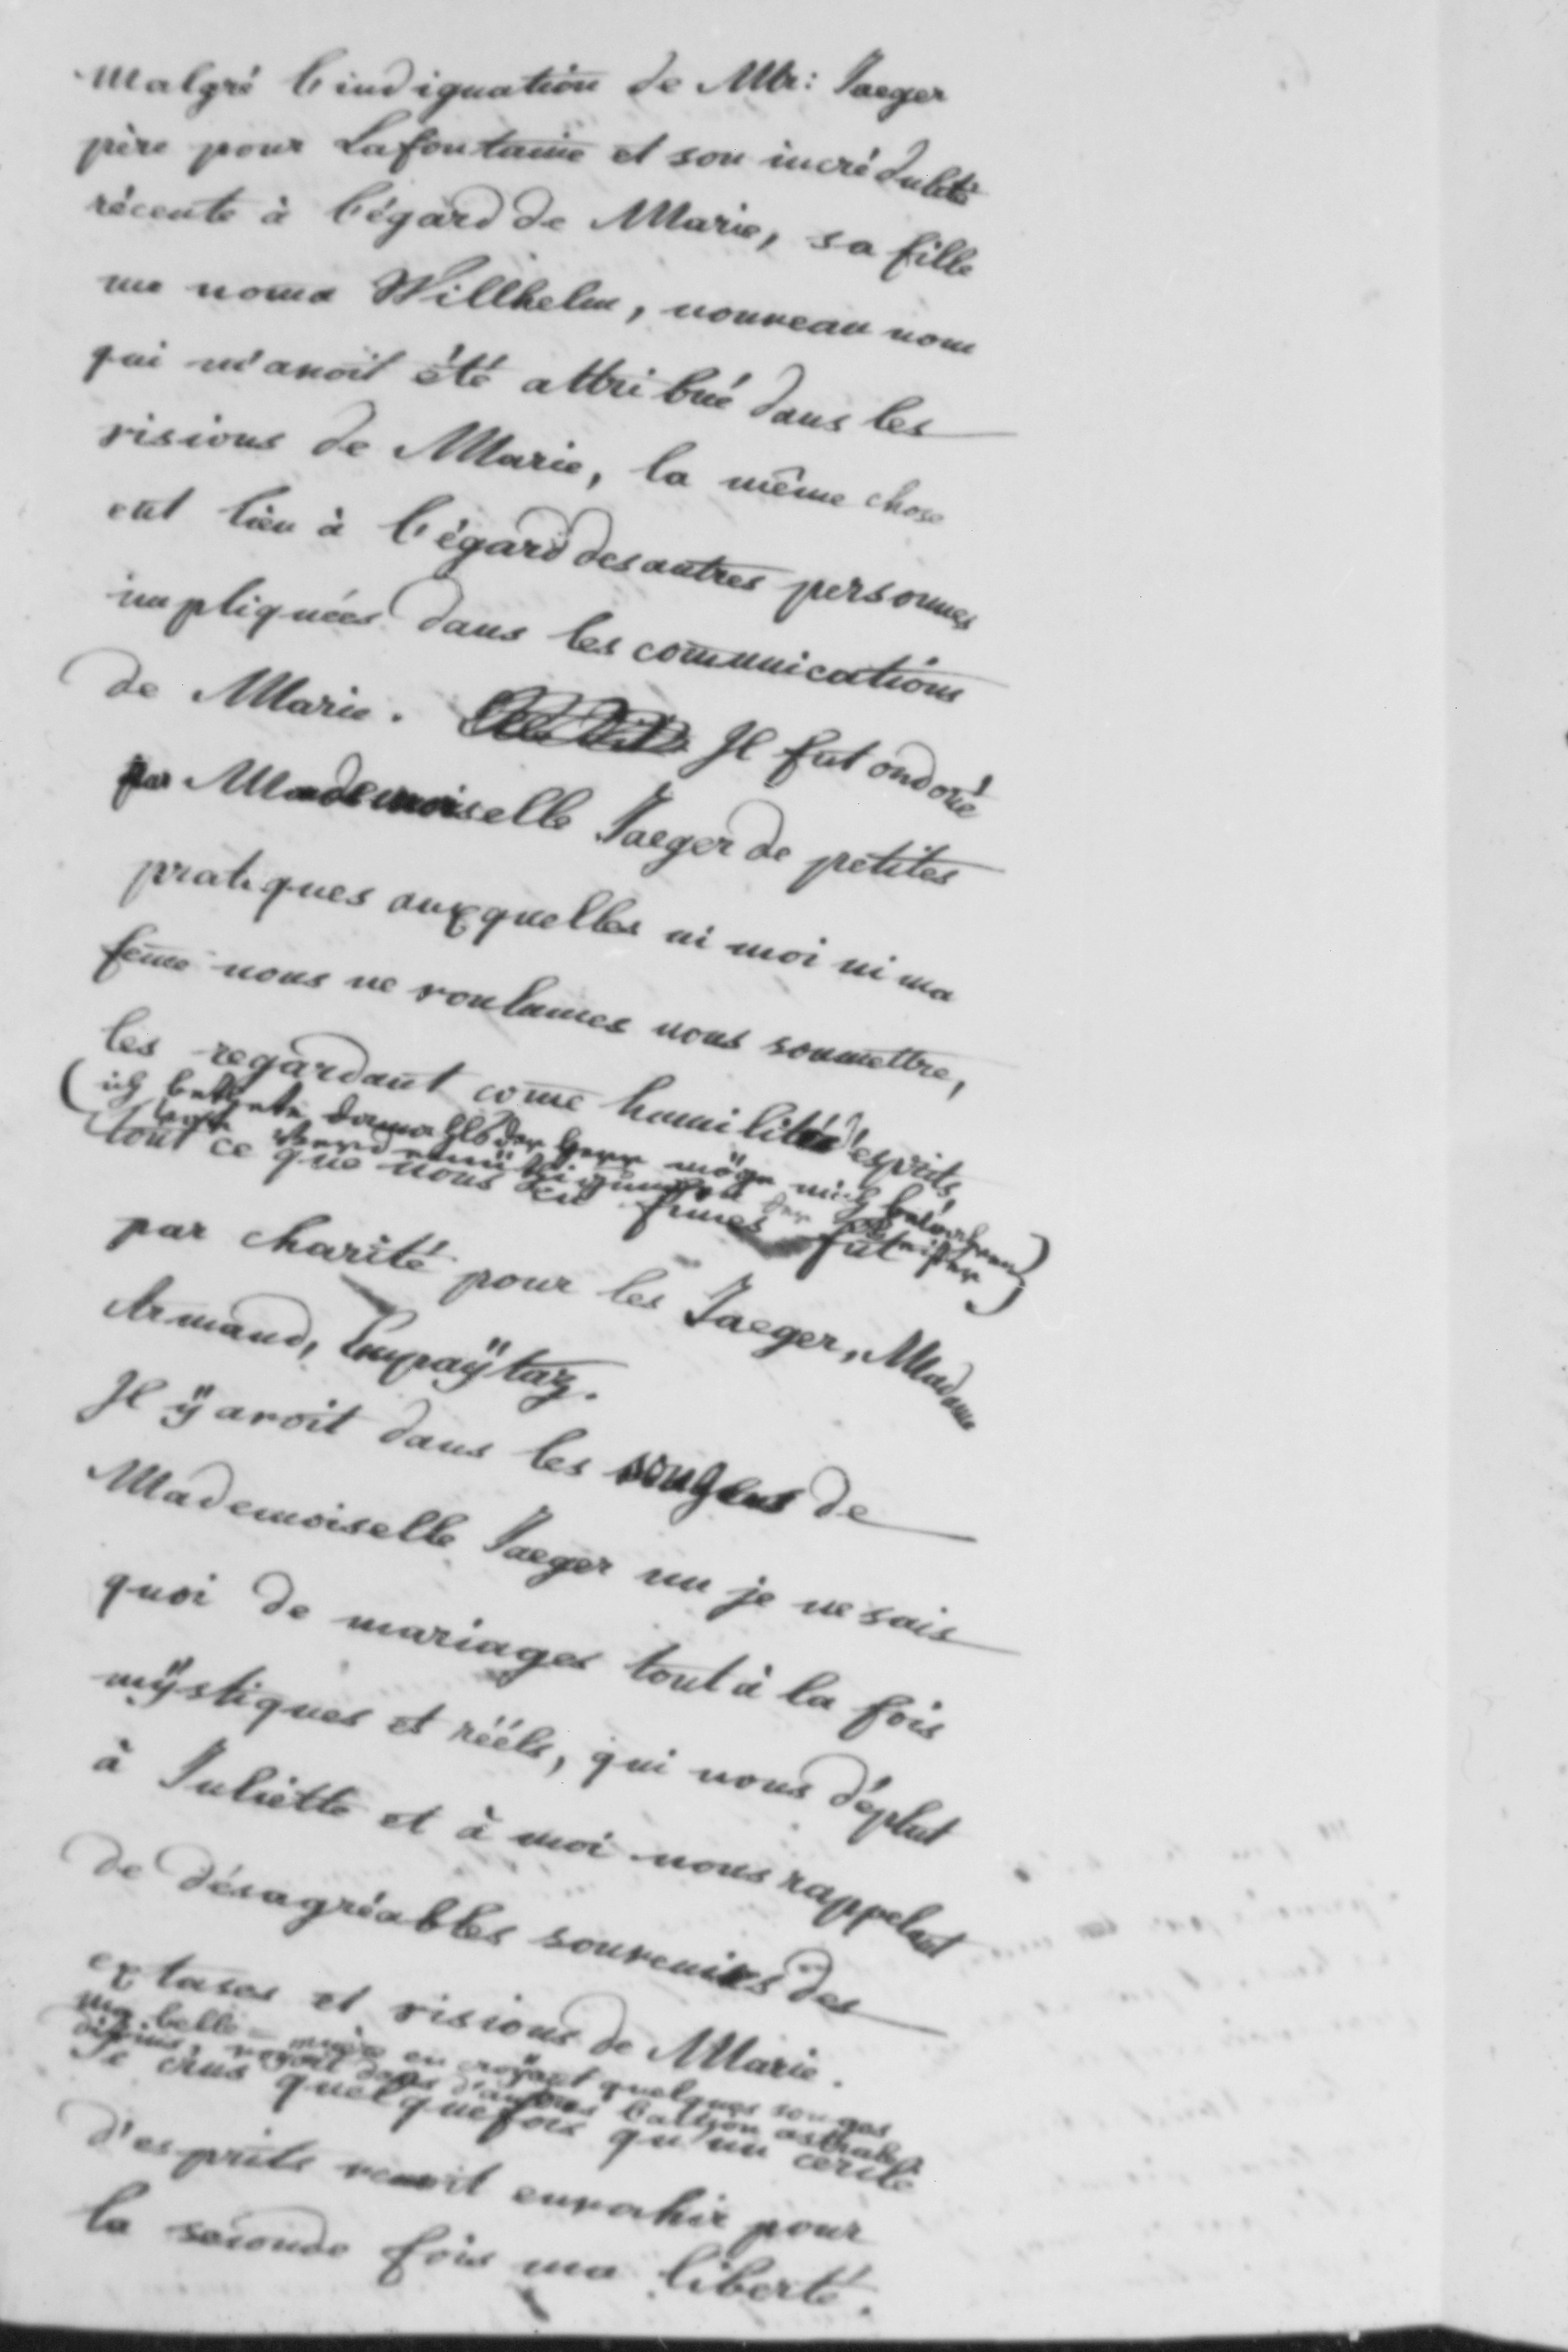 Malgré l'indignation de Mr: Jaeger
père pour Lafontaine et son incrédulité
récente à l'égard de Marie, sa fille
me noma Willhelm, nouveau nom
qui m'avoit été attribué dans les
visions de Marie, la même chose
eut lieu à l'égard des autres personnes
impliquées dans les comunications
de Marie. Il fut ordoné
par Mademoiselle Jaeger de petites
pratiques auxquelles ni moi ni ma
feme nous ne voulumes nous soumettre,
les regardant come humilités d'esprits,
(ich bethete damahls der Herr möge mich bewahren
vor Verdemüthigungen der Geister)
tout ce que nous en fimes fut
par charité pour les Jaeger, Madame
Armand, Empaÿtaz.
Il ÿ avoit dans les songes de
Mademoiselle Jaeger un je ne sais
quoi de mariages tout à la fois
mÿstiques et réels, qui nous déplut
à Juliette et à moi nous rappelant
de désagréables souvenirs des
extases et visions de Marie.
ma belle-mère en croÿant quelques songes
divins, voÿoit dans d'autres l'action astrale.
Je crus quelquefois qu'un cercle
d'esprits venoit envahir pour
la seconde fois ma liberté.